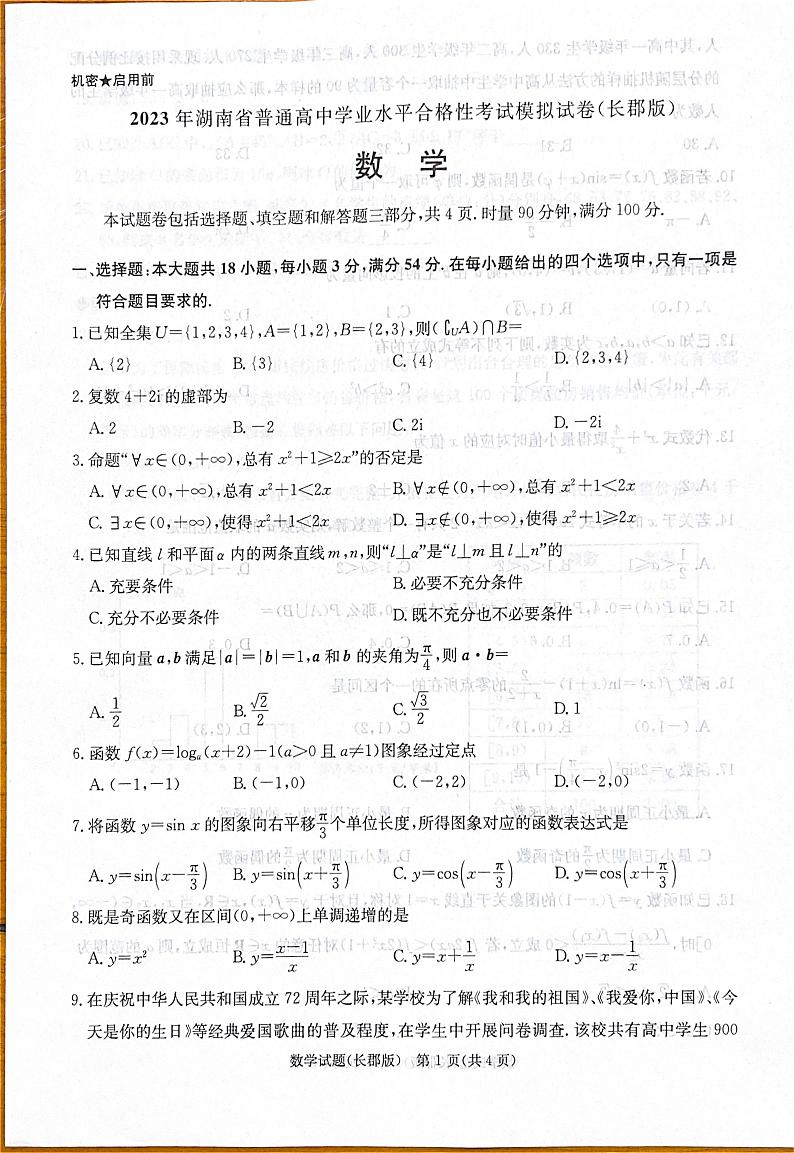 机密★启用前
2023年湖南省普通高中学业水平合格性考试模拟试卷(长郡版)
数 学
本试题卷包括选择题、填空题和解答题三部分,共4页.时量90分钟,满分100分.
一、选择题:本大题共18小题,每小题3分,满分54分.在每小题给出的四个选项中,只有一项是
符合题目要求的.
1.已知全集U={1,2,3,4},A={1,2},B={2,3},则(∁UA)∩B=
A.{2} B.{3} C.{4} D.{2,3,4}
2.复数4+2i的虚部为
A.2 B.-2 C.2i D.-2i
3.命题“∀x∈(0,+∞),总有x²+1≥2x”的否定是
A.∀x∈(0,+∞),总有x²+1<2x B.∀x∉(0,+∞),总有x²+1<2x
C.∃x∈(0,+∞),使得x²+1<2x D.∃x∉(0,+∞),使得x²+1≥2x
4.已知直线l和平面α内的两条直线m,n,则“l⊥α”是“l⊥m且l⊥n”的
A.充要条件 B.必要不充分条件
C.充分不必要条件 D.既不充分也不必要条件
5.已知向量a,b满足|a|=|b|=1,a和b的夹角为π/4,则a·b=
A.1/2 B.√2/2 C.√3/2 D.1
6.函数f(x)=logₐ(x+2)-1(a>0且a≠1)图象经过定点
A.(-1,-1) B.(-1,0) C.(-2,2) D.(-2,0)
7.将函数y=sin x的图象向右平移π/3个单位长度,所得图象对应的函数表达式是
A.y=sin(x-π/3) B.y=sin(x+π/3) C.y=cos(x-π/3) D.y=cos(x+π/3)
8.既是奇函数又在区间(0,+∞)上单调递增的是
A.y=x² B.y=(x-1)/x C.y=x+1/x D.y=x-1/x
9.在庆祝中华人民共和国成立72周年之际,某学校为了解《我和我的祖国》、《我爱你,中国》、《今
天是你的生日》等经典爱国歌曲的普及程度,在学生中开展问卷调查.该校共有高中学生900
数学试题(长郡版) 第1页(共4页)